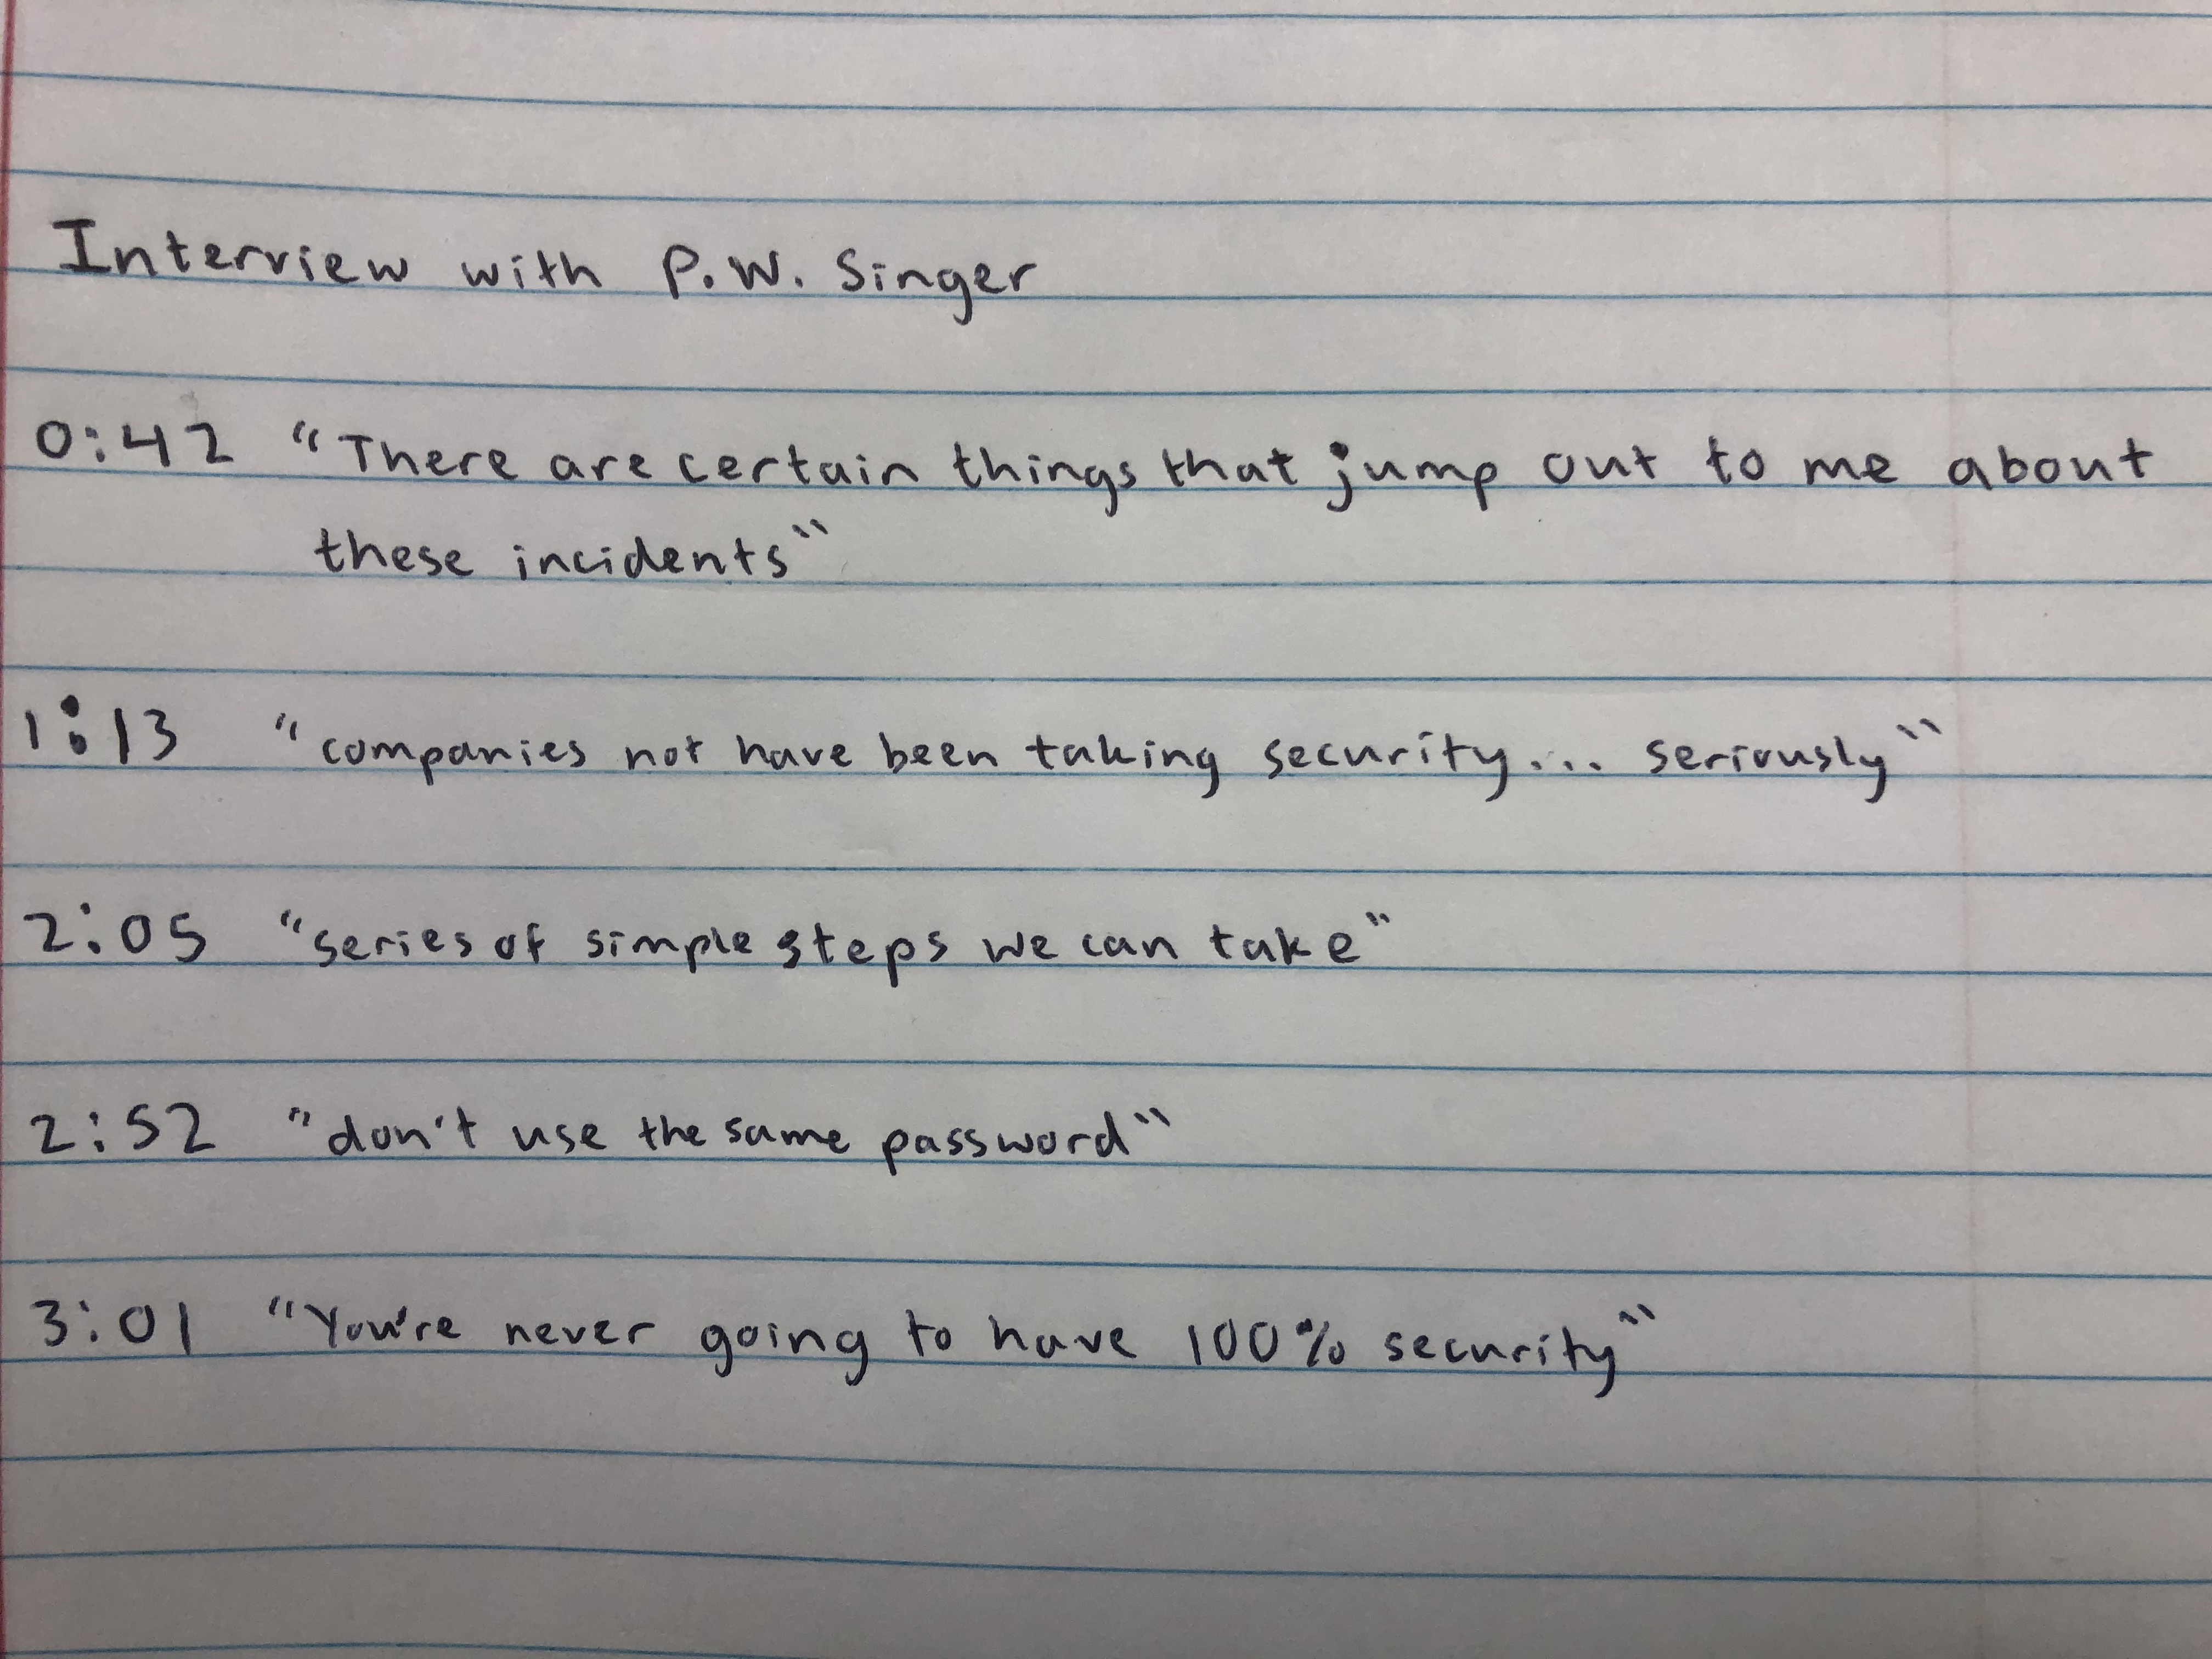 Interview with P.W. Singer
0:42 "There are certain things that jump out to me about
these incidents"
1:13 "companies not have been taking security... seriously"
2:05 "series of simple steps we can take"
2:52 "don't use the same password"
3:01 "You're never going to have 100% security"